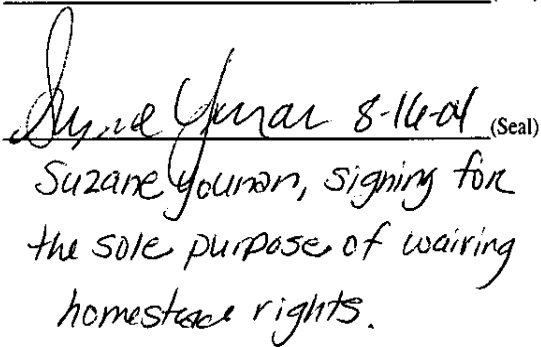 Suzane Younan 8-16-04 (Seal)
Suzane Younan, signing for
the sole purpose of waiving
homestead rights.